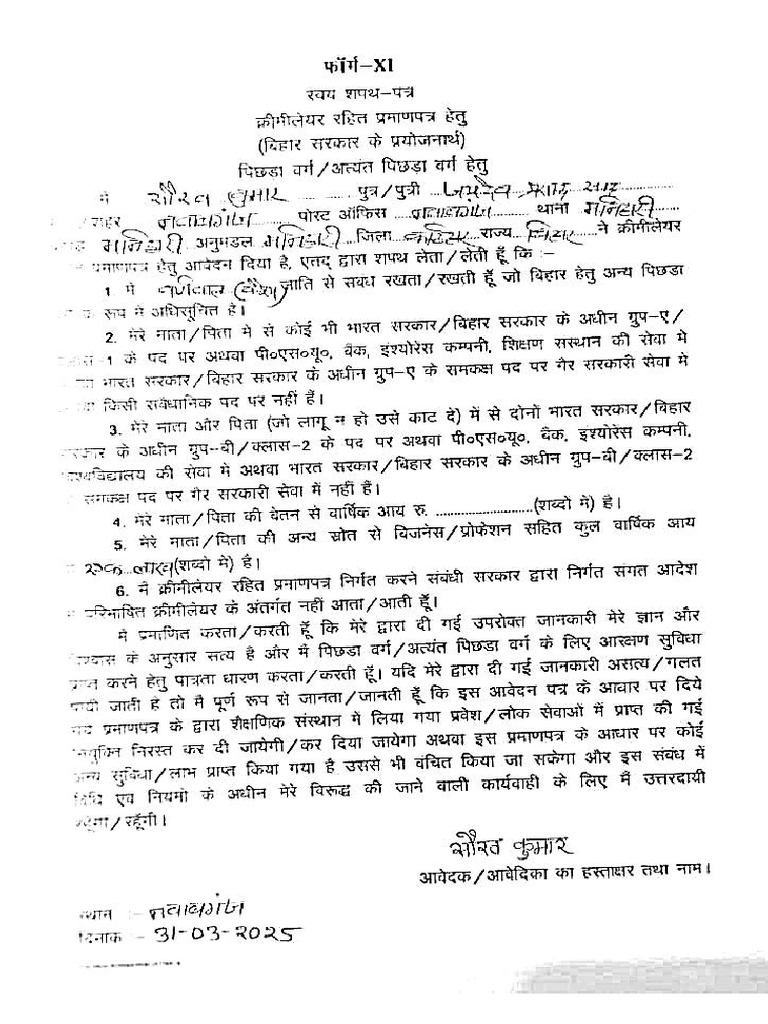 फॉर्म–XI
स्वय शपथ–पत्र
क्रीमीलेयर रहित प्रमाणपत्र हेतु
(बिहार सरकार के प्रयोजनार्थ)
पिछडा वर्ग/अत्यंत पिछड़ा वर्ग हेतु
मै सौरव कुमार पुत्र/पुत्री जयदेव प्रसाद साह
शहर नवाबगंज पोस्ट ऑफिस नवाबगंज थाना मनिहारी
मनिहारी अनुमडल मनिहारी जिला कटिहार राज्य बिहार ने क्रीमीलेयर
प्रमाणपत्र हेतु आवेदन दिया है, एतद् द्वारा शपथ लेता/लेती हूँ कि :–
1. मै जाति से सबध रखता/रखती हूँ जो बिहार हेतु अन्य पिछडा
के रूप मे अधिसूचित है।
2. मेरे माता/पिता मे से कोई भी भारत सरकार/बिहार सरकार के अधीन ग्रुप–ए/
–1 के पद पर अथवा पी०एस०यू०, बैंक, इंश्योरेंस कम्पनी, शिक्षण संस्थान की सेवा मे
भारत सरकार/बिहार सरकार के अधीन ग्रुप–ए के समकक्ष पद पर गैर सरकारी सेवा मे
किसी सवैधानिक पद पर नहीं हैं।
3. मेरे माता और पिता (जो लागू न हो उसे काट दे) में से दोनों भारत सरकार/बिहार
सरकार के अधीन ग्रुप–बी/क्लास–2 के पद पर अथवा पी०एस०यू०, बैंक, इंश्योरेंस कम्पनी,
विश्वविद्यालय की सेवा में अथवा भारत सरकार/बिहार सरकार के अधीन ग्रुप–बी/क्लास–2
समकक्ष पद पर गैर सरकारी सेवा में नहीं हैं।
4. मेरे माता/पिता की वेतन से वार्षिक आय रु. ........................(शब्दो में) है।
5. मेरे माता/पिता की अन्य स्रोत से बिजनेस/प्रोफेशन सहित कुल वार्षिक आय
एक लाख (शब्दो में) है।
6. मैं क्रीमीलेयर रहित प्रमाणपत्र निर्गत करने संबंधी सरकार द्वारा निर्गत संगत आदेश
परिभाषित क्रीमीलेयर के अंतर्गत नहीं आता/आती हूँ।
मै प्रमाणित करता/करती हूँ कि मेरे द्वारा दी गई उपरोक्त जानकारी मेरे ज्ञान और
विश्वास के अनुसार सत्य है और मैं पिछडा वर्ग/अत्यंत पिछडा वर्ग के लिए आरक्षण सुविधा
प्राप्त करने हेतु पात्रता धारण करता/करती हूँ। यदि मेरे द्वारा दी गई जानकारी असत्य/गलत
पायी जाती है तो मै पूर्ण रूप से जानता/जानती हूँ कि इस आवेदन पत्र के आधार पर दिये
गए प्रमाणपत्र के द्वारा शैक्षणिक संस्थान में लिया गया प्रवेश/लोक सेवाओं में प्राप्त की गई
नियुक्ति निरस्त कर दी जायेगी/कर दिया जायेगा अथवा इस प्रमाणपत्र के आधार पर कोई
अन्य सुविधा/लाभ प्राप्त किया गया है उससे भी वंचित किया जा सकेगा और इस संबंध में
विधि एव नियमो के अधीन मेरे विरूद्ध की जाने वाली कार्यवाही के लिए मैं उत्तरदायी
रहूँगा/रहूँगी।
सौरव कुमार
आवेदक/आवेदिका का हस्ताक्षर तथा नाम।
स्थान :– नवाबगंज
दिनाक :– 31-03-2025